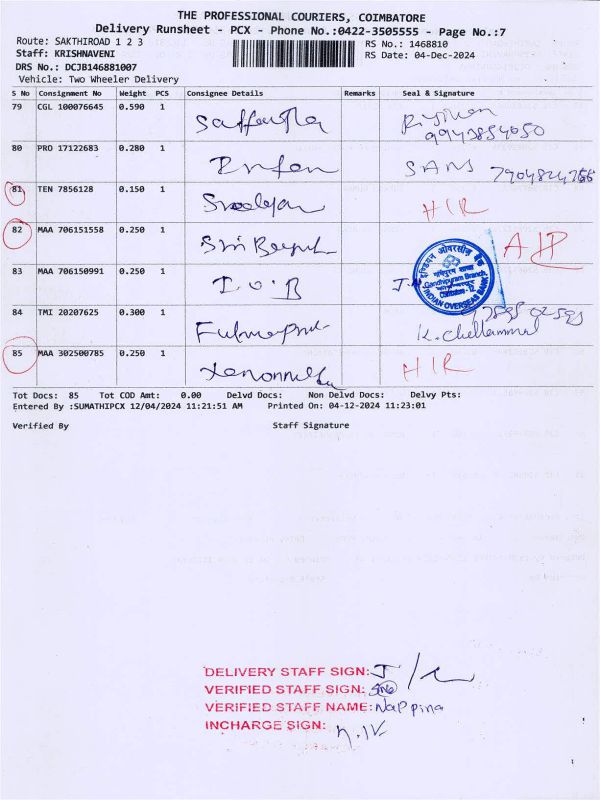 THE PROFESSIONAL COURIERS, COIMBATORE
Delivery Runsheet - PCX - Phone No.:0422-3505555 - Page No.:7
Route: SAKTHIROAD 1 2 3
RS No.: 1468810
Staff: KRISHNAVENI
RS Date: 04-Dec-2024
DRS No.: DCJB146881007
Vehicle: Two Wheeler Delivery
S No Consignment No Weight PCS Consignee Details Remarks Seal & Signature
79 CGL 100076645 0.590 1
9943854050
80 PRO 17122683 0.280 1 Irfan SANS
81 TEN 7856128 0.150 1 HIR
82 MAA 706151558 0.250 1 AIP
83 MAA 706150991 0.250 1 I.O.B
इण्डियन ओवरसीज़ बैंक
Gandhipuram Branch,
Coimbatore - 12.
INDIAN OVERSEAS BANK
84 TMI 20207625 0.300 1 K. Chellammal
85 MAA 302500785 0.250 1 HIR
Tot Docs: 85 Tot COD Amt: 0.00 Delvd Docs: Non Delvd Docs: Delvy Pts:
Entered By :SUMATHIPCX 12/04/2024 11:21:51 AM Printed On: 04-12-2024 11:23:01
Verified By Staff Signature
DELIVERY STAFF SIGN:
VERIFIED STAFF SIGN:
VERIFIED STAFF NAME: Nappina
INCHARGE SIGN: